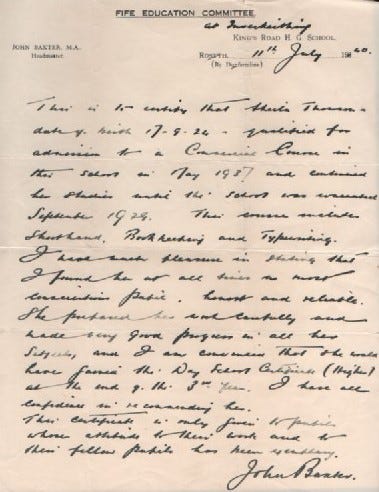 FIFE EDUCATION COMMITTEE.
at Inverkeithing
KING'S ROAD H. G. SCHOOL.
JOHN BAXTER, M.A.
Headmaster.
ROSYTH, 11th July 1940.
(By Dunfermline)
This is to certify that Sheila Thomson
date of birth 17-9-24 - qualified for
admission to a Commercial Course in
this School in May 1937 and continued
her studies until the School was evacuated
September 1939. This course includes
Shorthand, Bookkeeping and Typewriting.
I have much pleasure in stating that
I found her at all times a most
conscientious pupil, honest and reliable.
She prepared her work carefully and
made very good progress in all her
subjects, and I am convinced that she would
have gained the Day School Certificate (Higher)
at the end of the 3rd Year. I have all
confidence in recommending her.
This Certificate is only given to pupils
whose attitude to their work and to
their fellow pupils has been exemplary.
John Baxter.